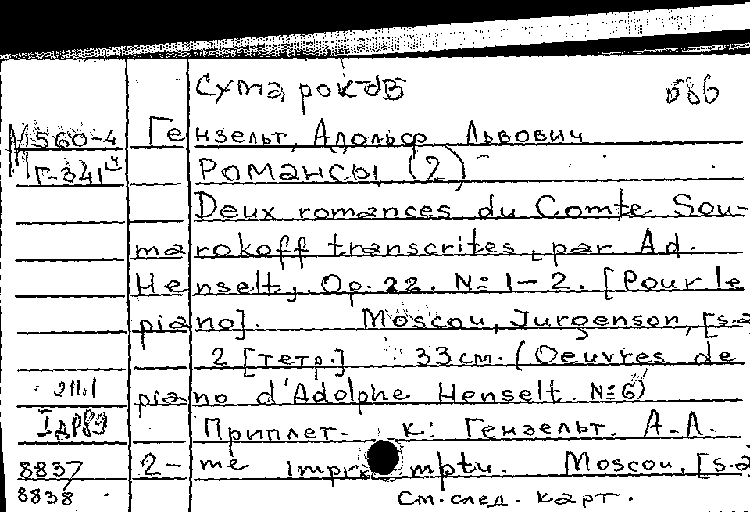 Сумароков 586
М560-4 Гензельт, Адольф Львович
Г-341 Романсы (2)
Deux romances du Comte Sou-
marokoff transcrites par Ad.
Henselt, Op. 22. №1-2. [Pour le
piano]. Moscou, Jurgenson, [s.a
2 [тетр.] 33см. (Oeuvres de
piano d'Adolphe Henselt №6)
Приплет. к: Гензельт. А.Л.
8837 2-me Impromptu. Moscou, [s.a
8838 См. след. карт.